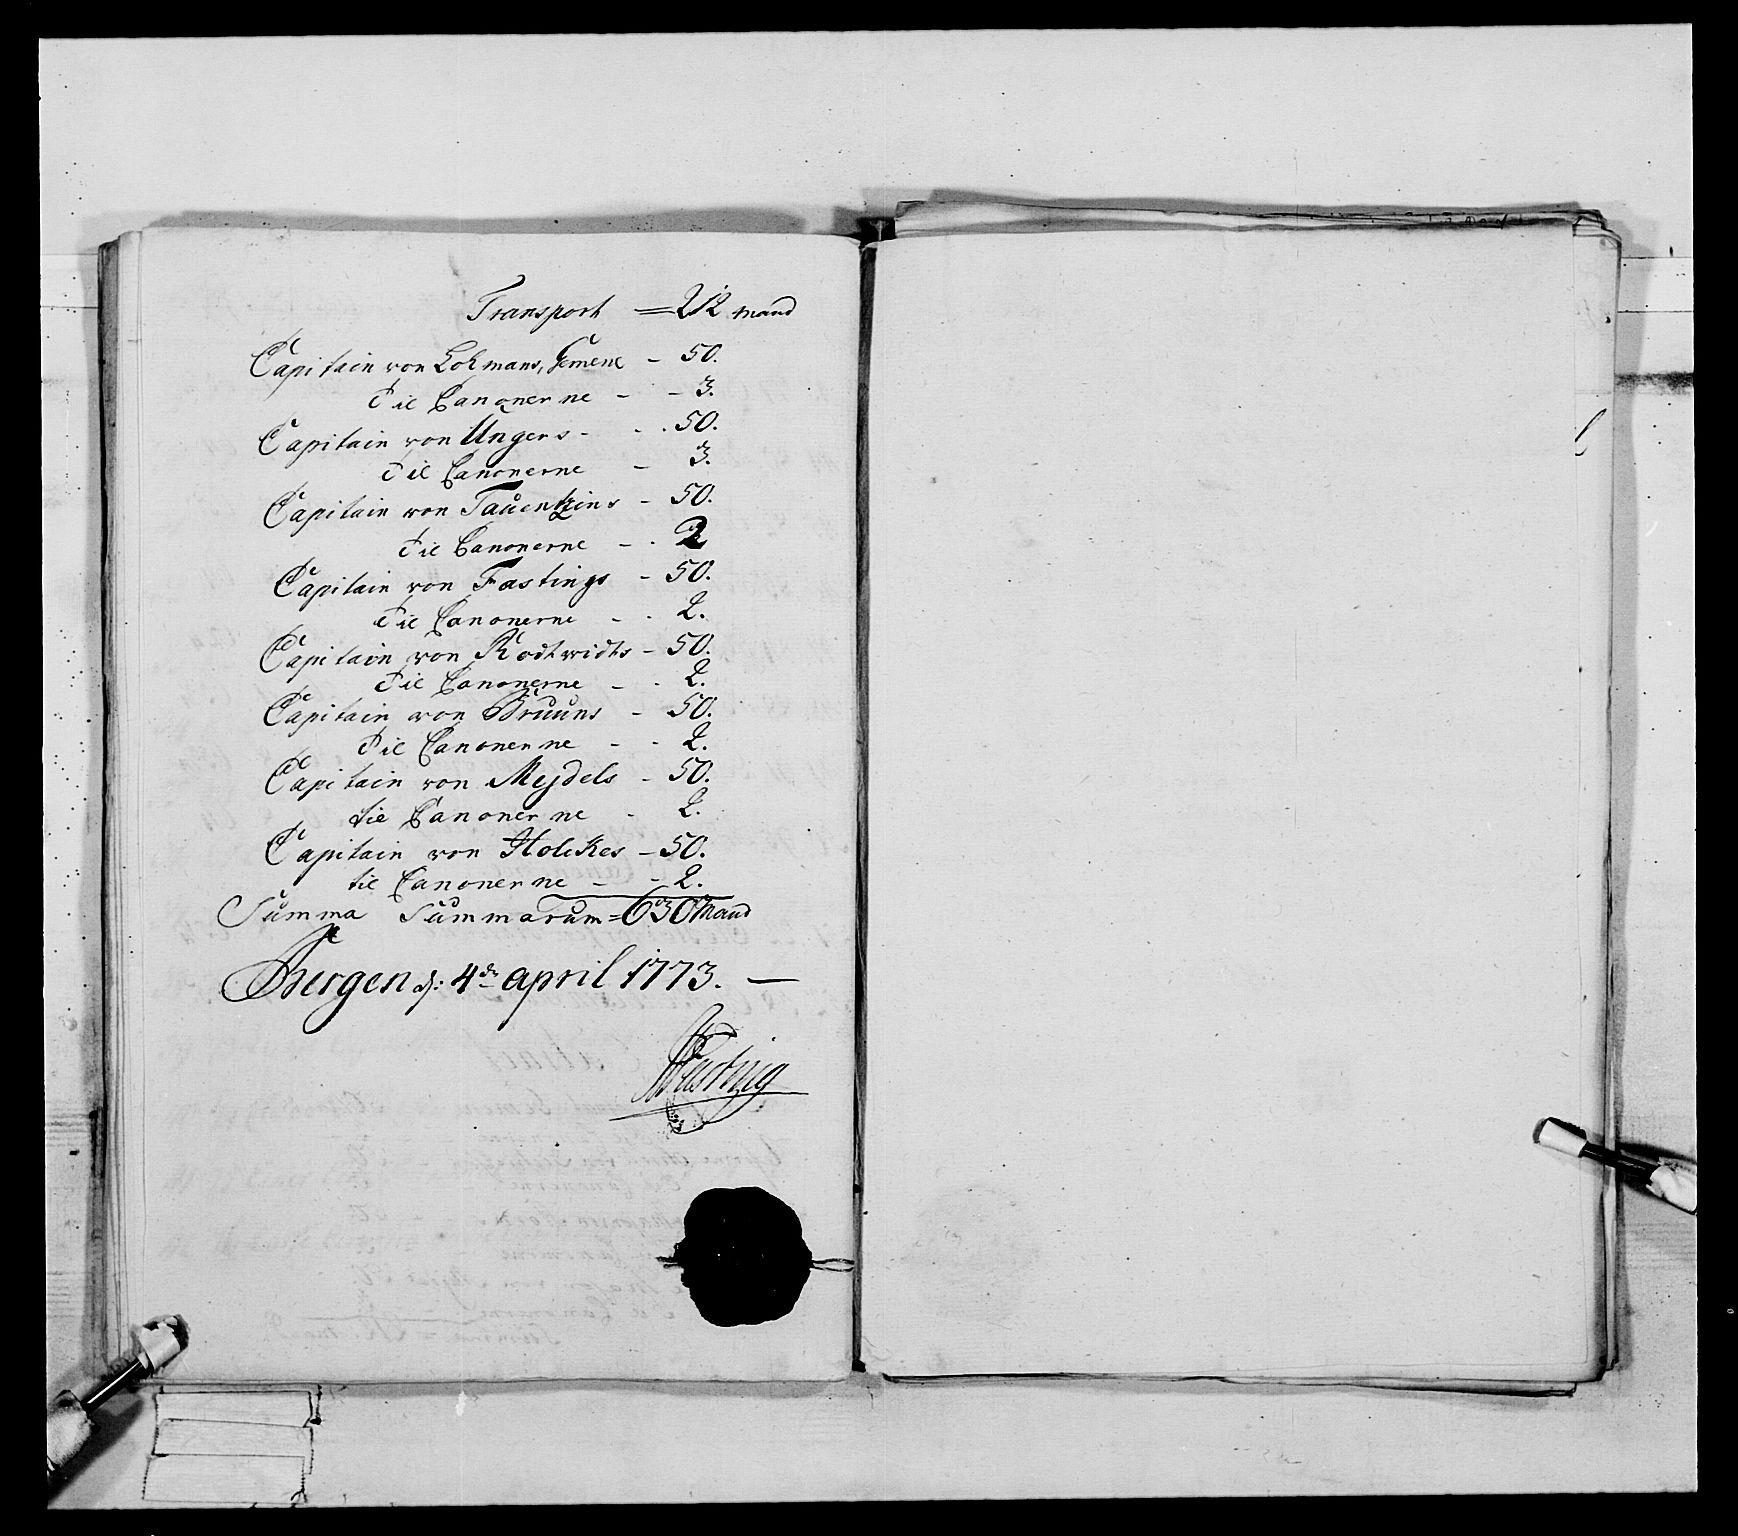 Transport = 212 mand
Capitain von Lohmans, Gemene - 50.
til Canonerne - - 3.
Capitain von Ungers - - . 50.
til Canonerne - 3.
Capitain von Tauentzins - 50.
til Canonerne - . 2
Capitain von Fastings - 50.
til Canonerne - . 2.
Capitain von Rodtwidts - 50.
til Canonerne - - 2.
Capitain von Bruuns - 50.
til Canonerne - - 2.
Capitain von Mejdels - 50.
til Canonerne - 2.
Capitain von Holckes - 50.
til Canonerne - - 2.
Summa Summarum = 630 Mand
Bergen d: 4de april 1773. —